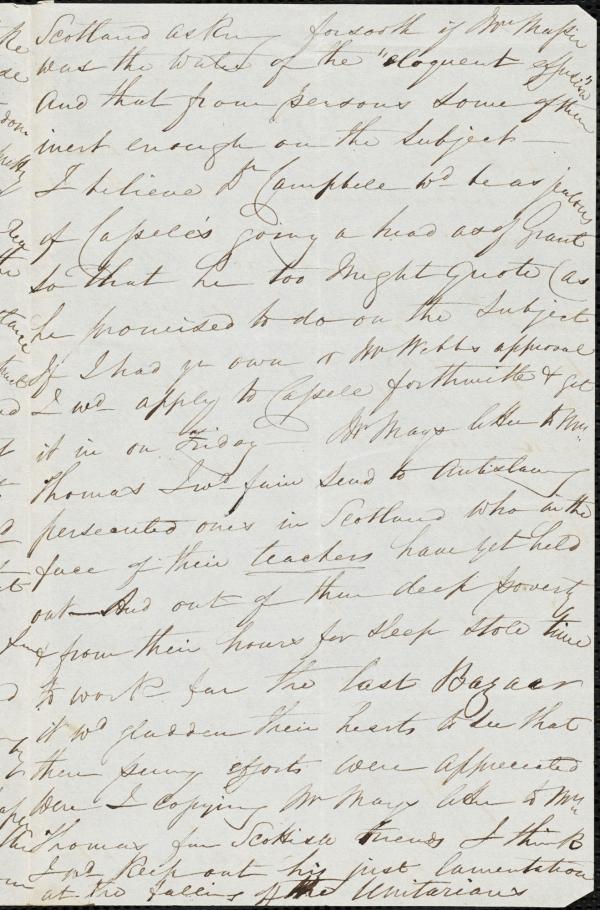 Scotland asking forsooth if Mrs Massie
was the writer of the "eloquent effusion"
And that from persons some of them
inert enough on the subject —
I believe Dr Campbell wd be as jealous
of Capele's going a head as of Grant
so that he too might quote (as
he promised to do on the subject
If I had yr own or Mr Webbs approval
I wd apply to Capele forthwith & get
it in on Friday Mr Mays letter to Mrs
Thomas I wd fain send to Antislavery
persecuted ones in Scotland who in the
face of their teachers have yet held
out — And out of their deep poverty
& from their hours for sleep stole time
to work for the last Bazaar
it wd gladden their hearts to see that
their efforts were appreciated
Were I copying Mr Mays letter to Mrs
Thomas for Scottish friends I think
I wd keep out his just lamentation
at the falling of the Unitarians